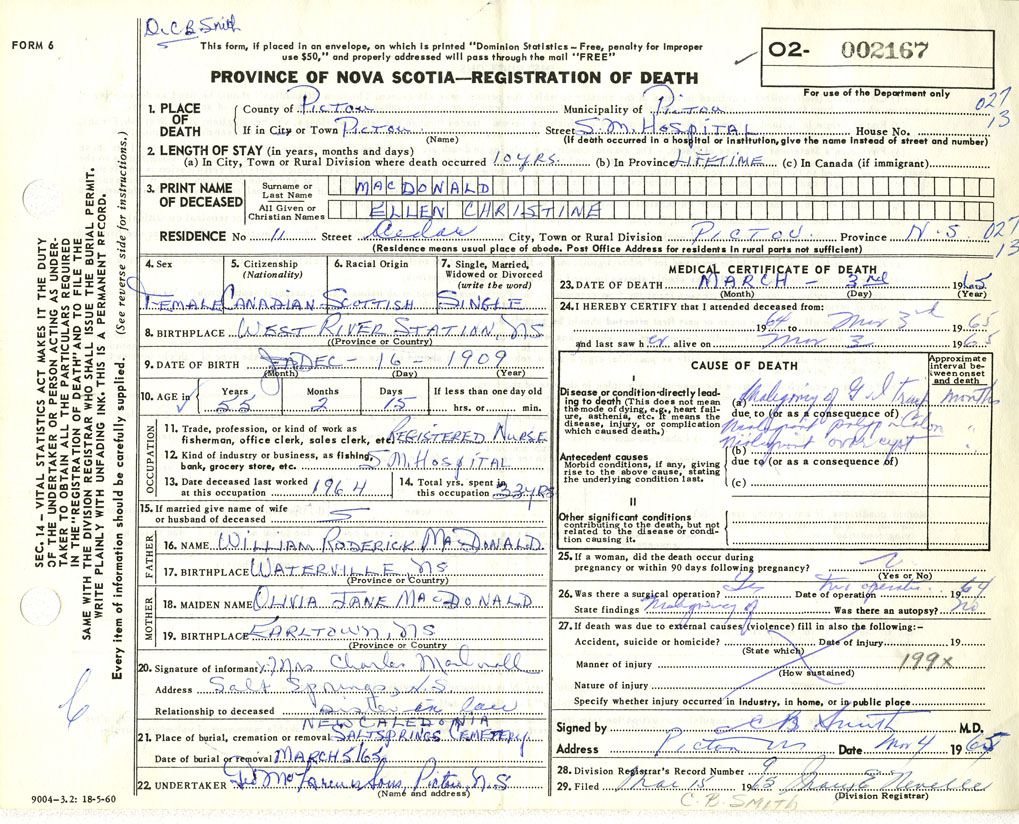 Dr. C B Smith
FORM 6
This form, if placed in an envelope, on which is printed "Dominion Statistics – Free, penalty for improper
use $50," and properly addressed will pass through the mail "FREE"
O2- 002167
For use of the Department only
PROVINCE OF NOVA SCOTIA—REGISTRATION OF DEATH
027
13
1. PLACE OF DEATH
County of PICTOU Municipality of PICTOU
If in City or Town PICTOU (Name) Street S.M. HOSPITAL House No.
(If death occurred in a hospital or institution, give the name instead of street and number)
2. LENGTH OF STAY (in years, months and days)
(a) In City, Town or Rural Division where death occurred 10 YRS. (b) In Province LIFETIME (c) In Canada (if immigrant)
3. PRINT NAME OF DECEASED
Surname or Last Name MACDONALD
All Given or Christian Names ELLEN CHRISTINE
RESIDENCE No 11 Street Cedar City, Town or Rural Division PICTOU Province N.S. 027
13
(Residence means usual place of abode. Post Office Address for residents in rural parts not sufficient)
4. Sex FEMALE
5. Citizenship (Nationality) CANADIAN
6. Racial Origin SCOTTISH
7. Single, Married, Widowed or Divorced (write the word) SINGLE
8. BIRTHPLACE WEST RIVER STATION, NS
(Province or Country)
9. DATE OF BIRTH DEC - 16 - 1909
(Month) (Day) (Year)
10. AGE in Years 55 Months 2 Days 15 If less than one day old hrs. or min.
OCCUPATION
11. Trade, profession, or kind of work as
fisherman, office clerk, sales clerk, etc. REGISTERED NURSE
12. Kind of industry or business, as fishing,
bank, grocery store, etc. S.M. HOSPITAL
13. Date deceased last worked
at this occupation 1964
14. Total yrs. spent in
this occupation 33 YRS
15. If married give name of wife
or husband of deceased S
FATHER
16. NAME WILLIAM RODERICK MACDONALD
17. BIRTHPLACE WATERVILLE, NS
(Province or Country)
MOTHER
18. MAIDEN NAME OLIVIA JANE MACDONALD
19. BIRTHPLACE EARLTOWN, NS
(Province or Country)
20. Signature of informant Mrs. Charles
Address Salt Springs, N.S.
Relationship to deceased sister in law
21. Place of burial, cremation or removal NEW CALEDONIA
SALTSPRINGS CEMETERY
Date of burial or removal MARCH 5/65
22. UNDERTAKER Sons Pictou N.S
(Name and address)
9004–3.2: 18-5-60
MEDICAL CERTIFICATE OF DEATH
23. DATE OF DEATH MARCH - 3rd 1965
(Month) (Day) (Year)
24. I HEREBY CERTIFY that I attended deceased from:
1964 to Mar 3rd 1965
and last saw her alive on Mar 3 1965
CAUSE OF DEATH
Approximate
interval be-
tween onset
and death
I
Disease or condition directly lead-
ing to death (This does not mean
the mode of dying, e.g., heart fail-
ure, asthenia, etc. It means the
disease, injury, or complication
which caused death.)
(a) Malignancy of G.I. tract months
due to (or as a consequence of)
Malignant polyp - Colon "
(b) Malignant ovary cyst "
due to (or as a consequence of)
(c)
Antecedent causes
Morbid conditions, if any, giving
rise to the above cause, stating
the underlying condition last.
II
Other significant conditions
contributing to the death, but not
related to the disease or condi-
tion causing it.
25. If a woman, did the death occur during
pregnancy or within 90 days following pregnancy?
(Yes or No)
26. Was there a surgical operation? Yes Date of operation 1964
State findings Malignancy of Was there an autopsy? no
27. If death was due to external causes (violence) fill in also the following:–
Accident, suicide or homicide? Date of injury 19
(State which)
Manner of injury 199x
(How sustained)
Nature of injury
Specify whether injury occurred in industry, in home, or in public place
Signed by C B Smith M.D.
Address Pictou NS Date Mar 4 1965
28. Division Registrar's Record Number 9
29. Filed Mar 15 1965
(Division Registrar)
C. B. SMITH
SEC. 14 – VITAL STATISTICS ACT MAKES IT THE DUTY
OF THE UNDERTAKER OR PERSON ACTING AS UNDER-
TAKER TO OBTAIN ALL THE PARTICULARS REQUIRED
IN THE "REGISTRATION OF DEATH" AND TO FILE THE
SAME WITH THE DIVISION REGISTRAR WHO SHALL ISSUE THE BURIAL PERMIT.
WRITE PLAINLY WITH UNFADING INK. THIS IS A PERMANENT RECORD.
Every item of information should be carefully supplied. (See reverse side for instructions.)